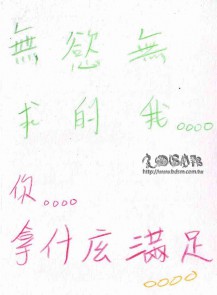 無慾無
求的我。。。。
http://www.bdsm.com.tw
你。。。。
拿什庅滿足
。。。。